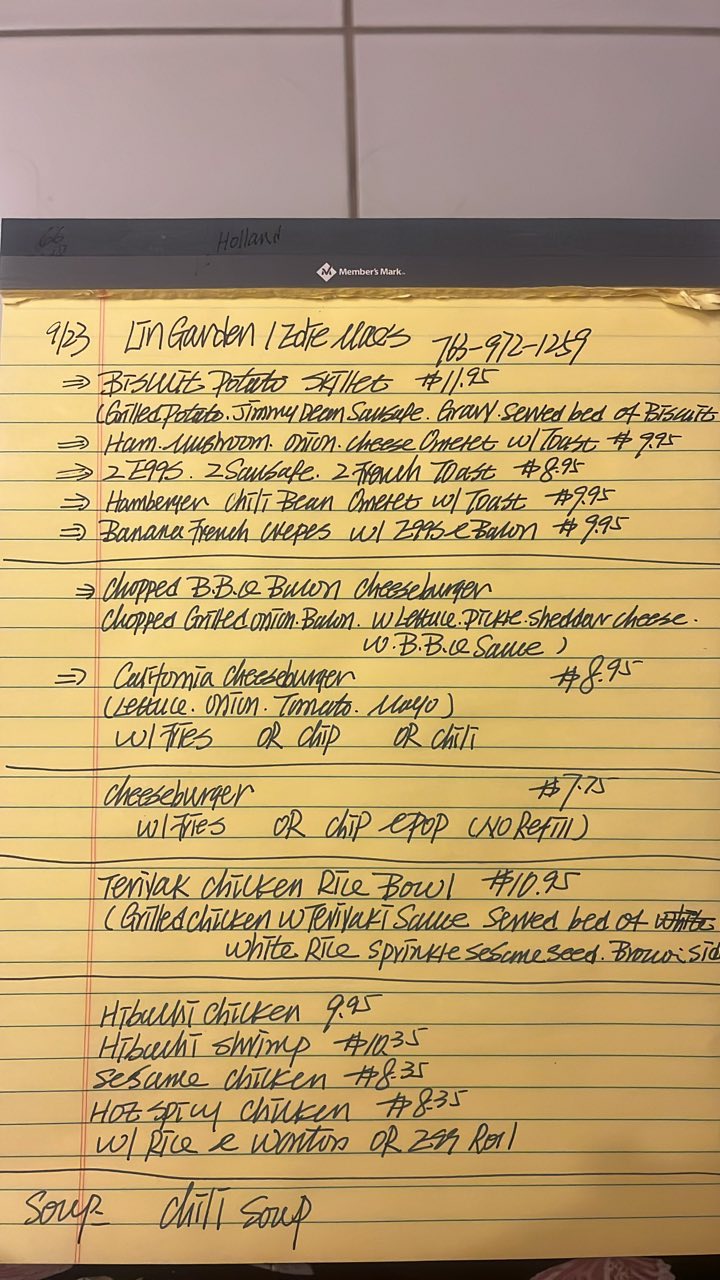 Holland
Member's Mark
9/23 Lin Garden / Zote Maes 763-972-1259
⇒ Biscuit Potato Skillet $11.95
(Grilled Potato. Jimmy Dean Sausage. Gravy. Served bed of Biscuit
⇒ Ham. Mushroom. onion. cheese Omeret w/ Toast $9.95
⇒ 2 Eggs. 2 Sausage. 2 French Toast $8.95
⇒ Hamberger Chili Bean Omeret w/ Toast $9.95
⇒ Banana French crepes w/ 2 Eggs & Bacon $9.95
⇒ Chopped B.B.Q Bacon Cheeseburger
Chopped Grilled onion. Bacon. w Lettuce. pickle. sheddar cheese.
w. B.B.Q Sauce )
⇒ California cheeseburger $8.95
(Lettuce. onion. Tomato. Mayo)
w/ Fries OR chip OR chili
cheeseburger $7.75
w/ Fries OR chip & pop (NO Refill)
Teriyak chicken Rice Bowl $10.95
(Grilled chicken w Teriyaki Sauce Served bed of white
white Rice sprinkle sesame seed. Brow sid
Hibachi chicken 9.95
Hibachi shrimp $10.35
sesame chicken $8.35
HOT spicy chicken $8.35
w/ Rice & wontons OR Egg Roll
Soup- chili soup